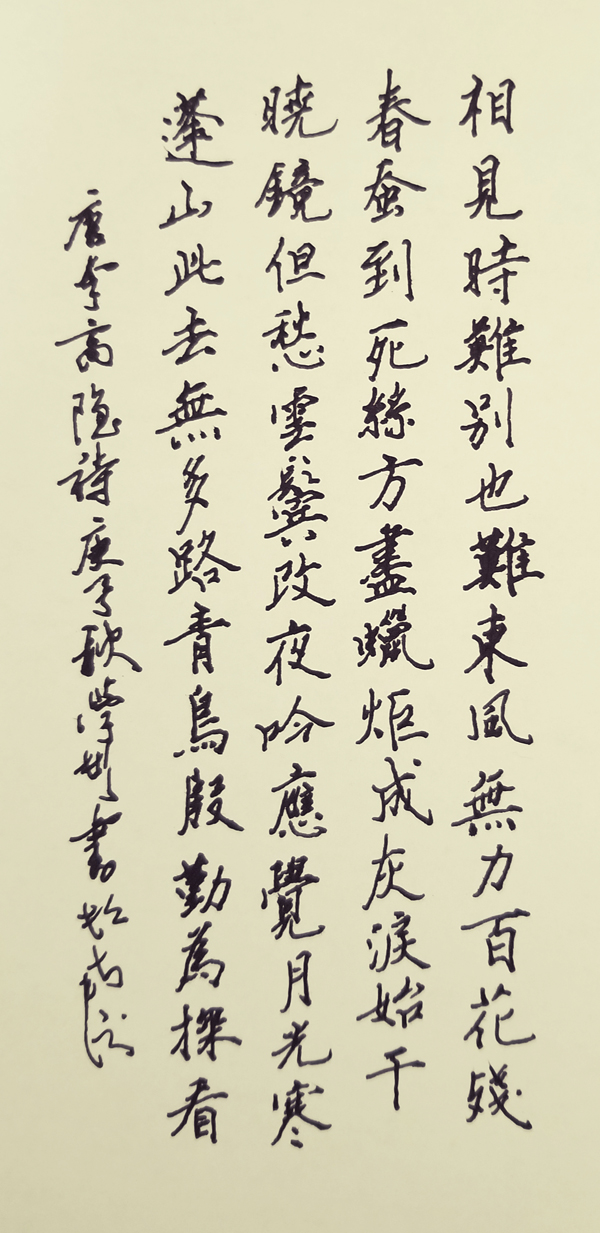 相見時難別也難東風無力百花殘
春蚕到死絲方盡蠟炬成灰淚始干
曉鏡但愁雲鬢改夜吟應覺月光寒
蓬山此去無多路青鳥殷勤為探看
唐李商隐詩庚子秋 書於